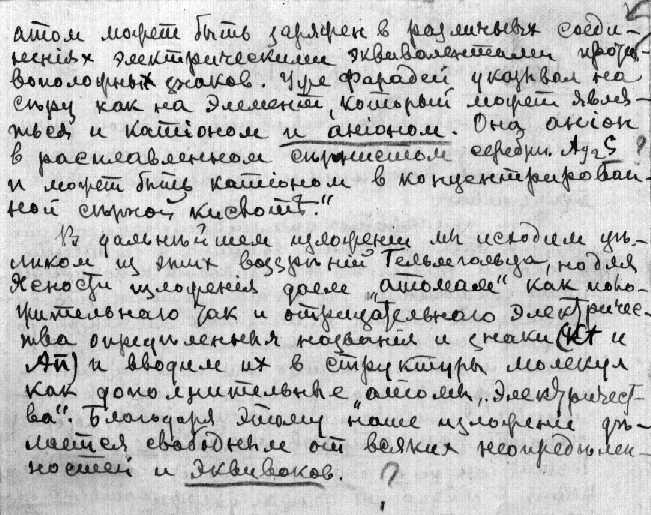 атом может быть заряжен в различных соеди-
неніях электрическими эквивалентами проти-
воположных знаков. Уже Фарадей указывал на
сѣру как на элемент, который может явля-
ться и катіоном и аніоном. Она аніон
в расплавленном сѣрнистом серебрѣ Ag₂S ?
и может быть катіоном в концентрирован-
ной сѣрной кислотѣ."
В дальнѣйшем изложеніи мы исходим цѣ-
ликом из этих воззрѣній Гельмгольца, но для
ясности изложенія даем „атомам" как поло-
жительнаго так и отрицательнаго электричес-
тва опредѣленныя названія и знаки (Kt и
An) и вводим их в структуры молекул
как дополнительные „атомы электричест-
ва". Благодаря этому наше изложеніе дѣ-
лается свободным от всяких неопредѣлен-
ностей и эквивоков. ?